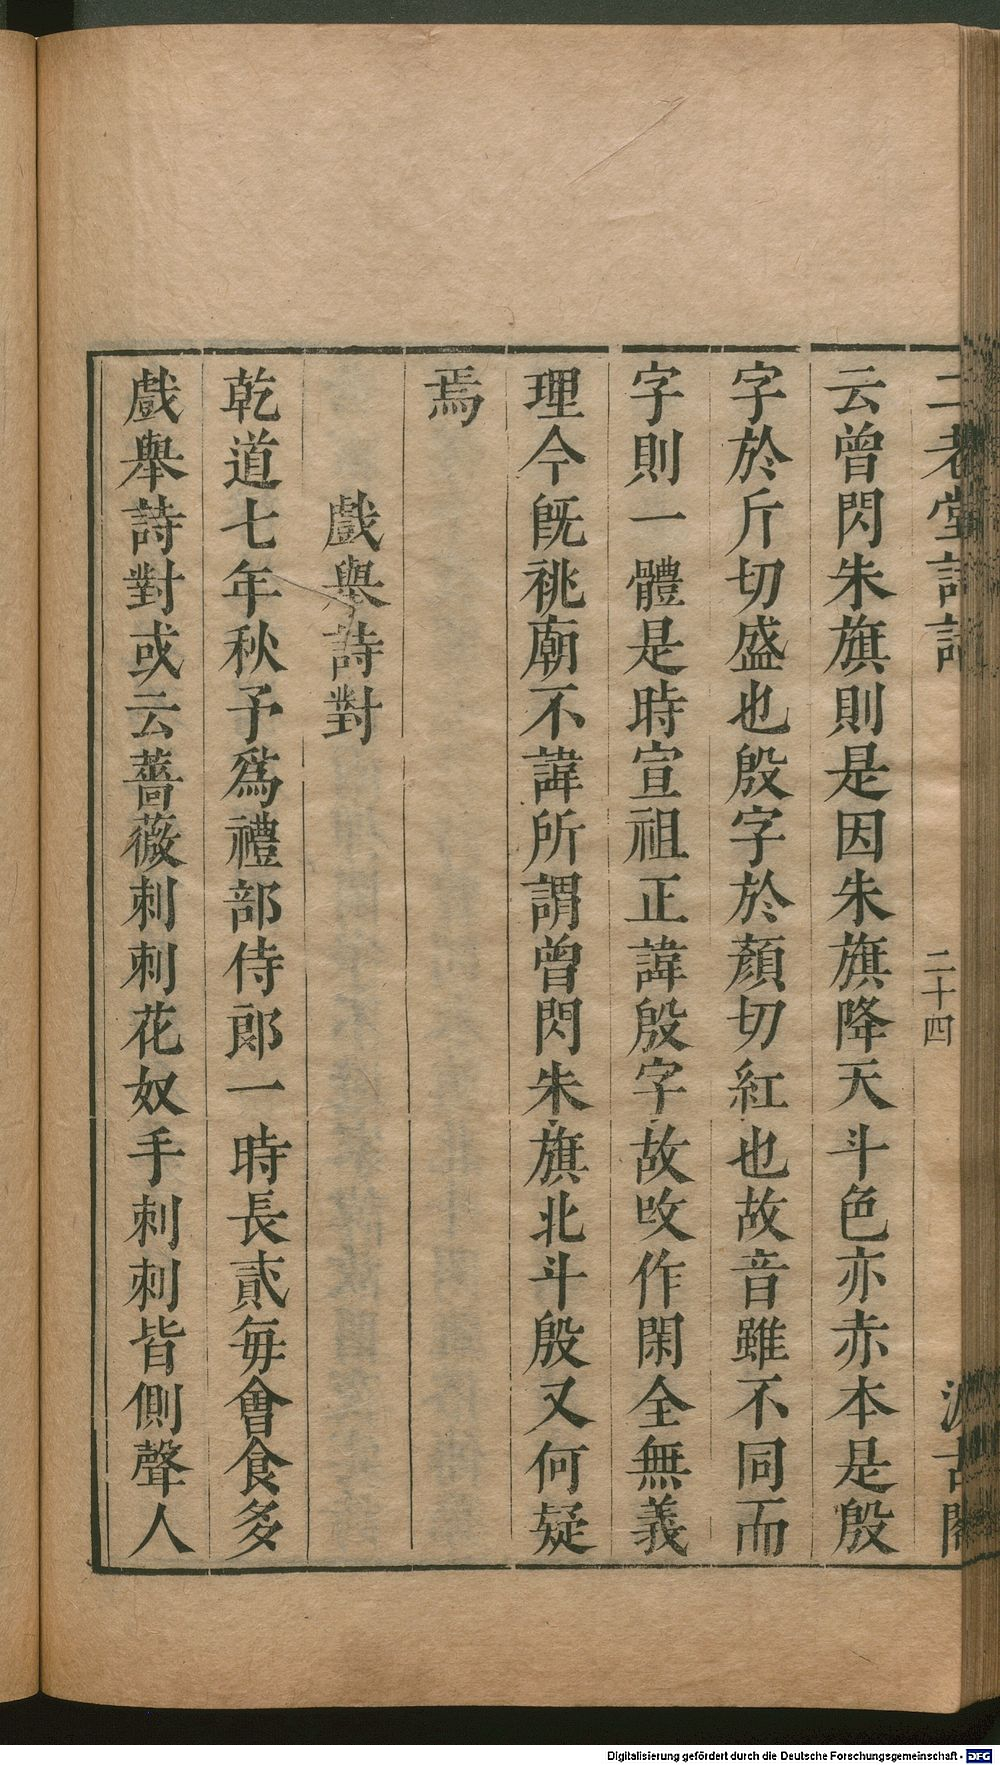 二老堂詩話
二十四
汲古閣
云曾閃朱旗則是因朱旗降天斗色亦赤本是殷
字於斤切盛也殷字於顏切紅也故音雖不同而
字則一體是時宣祖正諱殷字故攺作閑全無義
理今旣祧廟不諱所謂曾閃朱旗北斗殷又何疑
焉
戲舉詩對
乾道七年秋予爲禮部侍郎一時長貳毎會食多
戲舉詩對或云薔薇刺刺花奴手刺刺皆側聲人
Digitalisierung gefördert durch die Deutsche Forschungsgemeinschaft - DFG